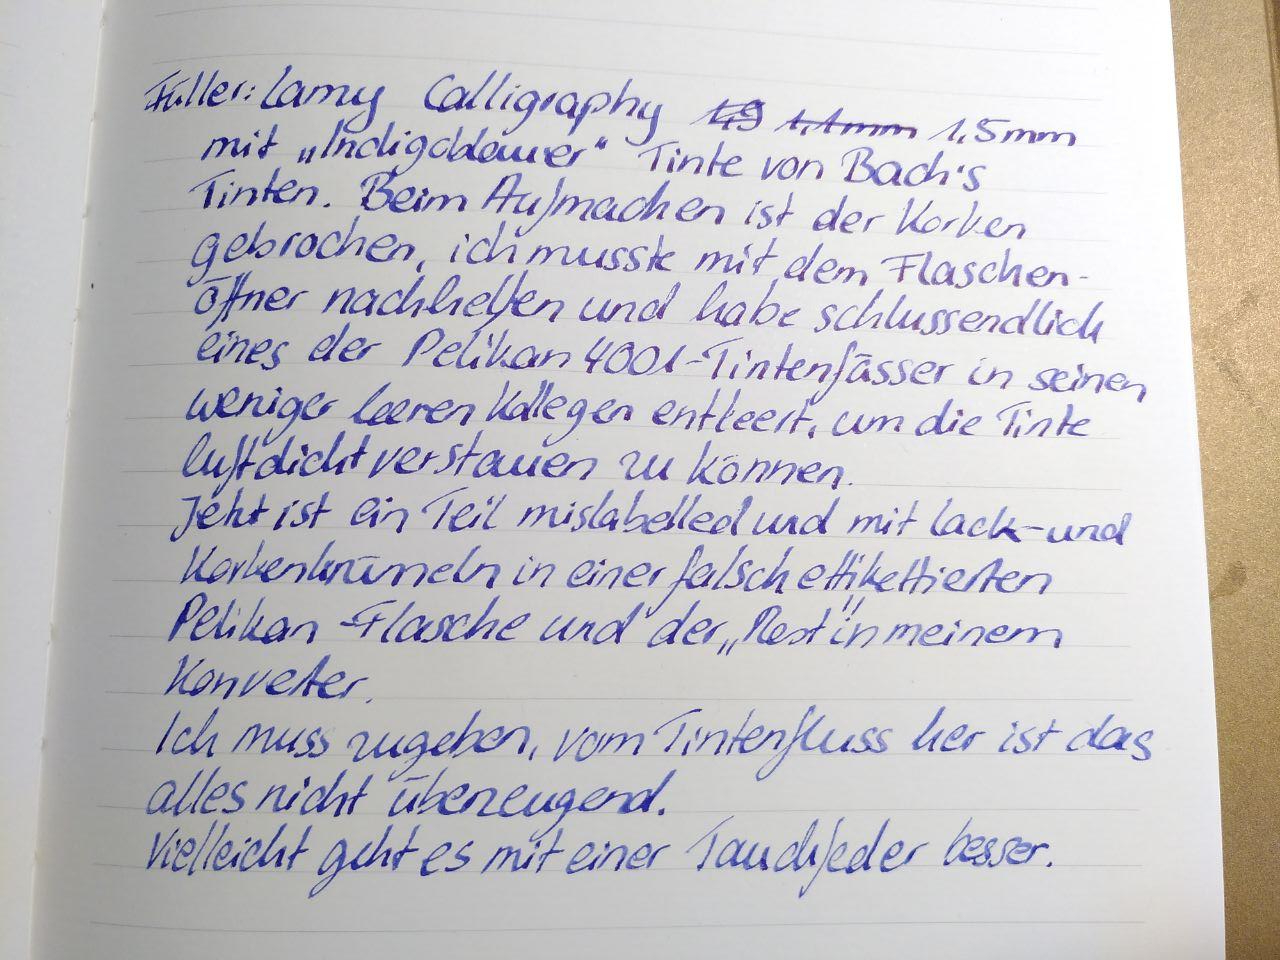 Füller: Lamy Calligraphy 1,9 1,1mm 1,5mm
mit „Indigoblauer“ Tinte von Bach's
Tinten. Beim Aufmachen ist der Korken
gebrochen, ich musste mit dem Flaschen-
öffner nachhelfen und habe schlussendlich
eines der Pelikan 4001-Tintenfässer in seinen
weniger leeren Kollegen entleert, um die Tinte
luftdicht verstauen zu können.
Jetzt ist ein Teil mislabelled und mit Lack- und
Korkenkrümeln in einer falsch ettikettierten
Pelikan-Flasche und der „Rest“ in meinem
Konverter.
Ich muss zugeben, vom Tintenfluss her ist das
alles nicht überzeugend.
Vielleicht geht es mit einer Tauchfeder besser.